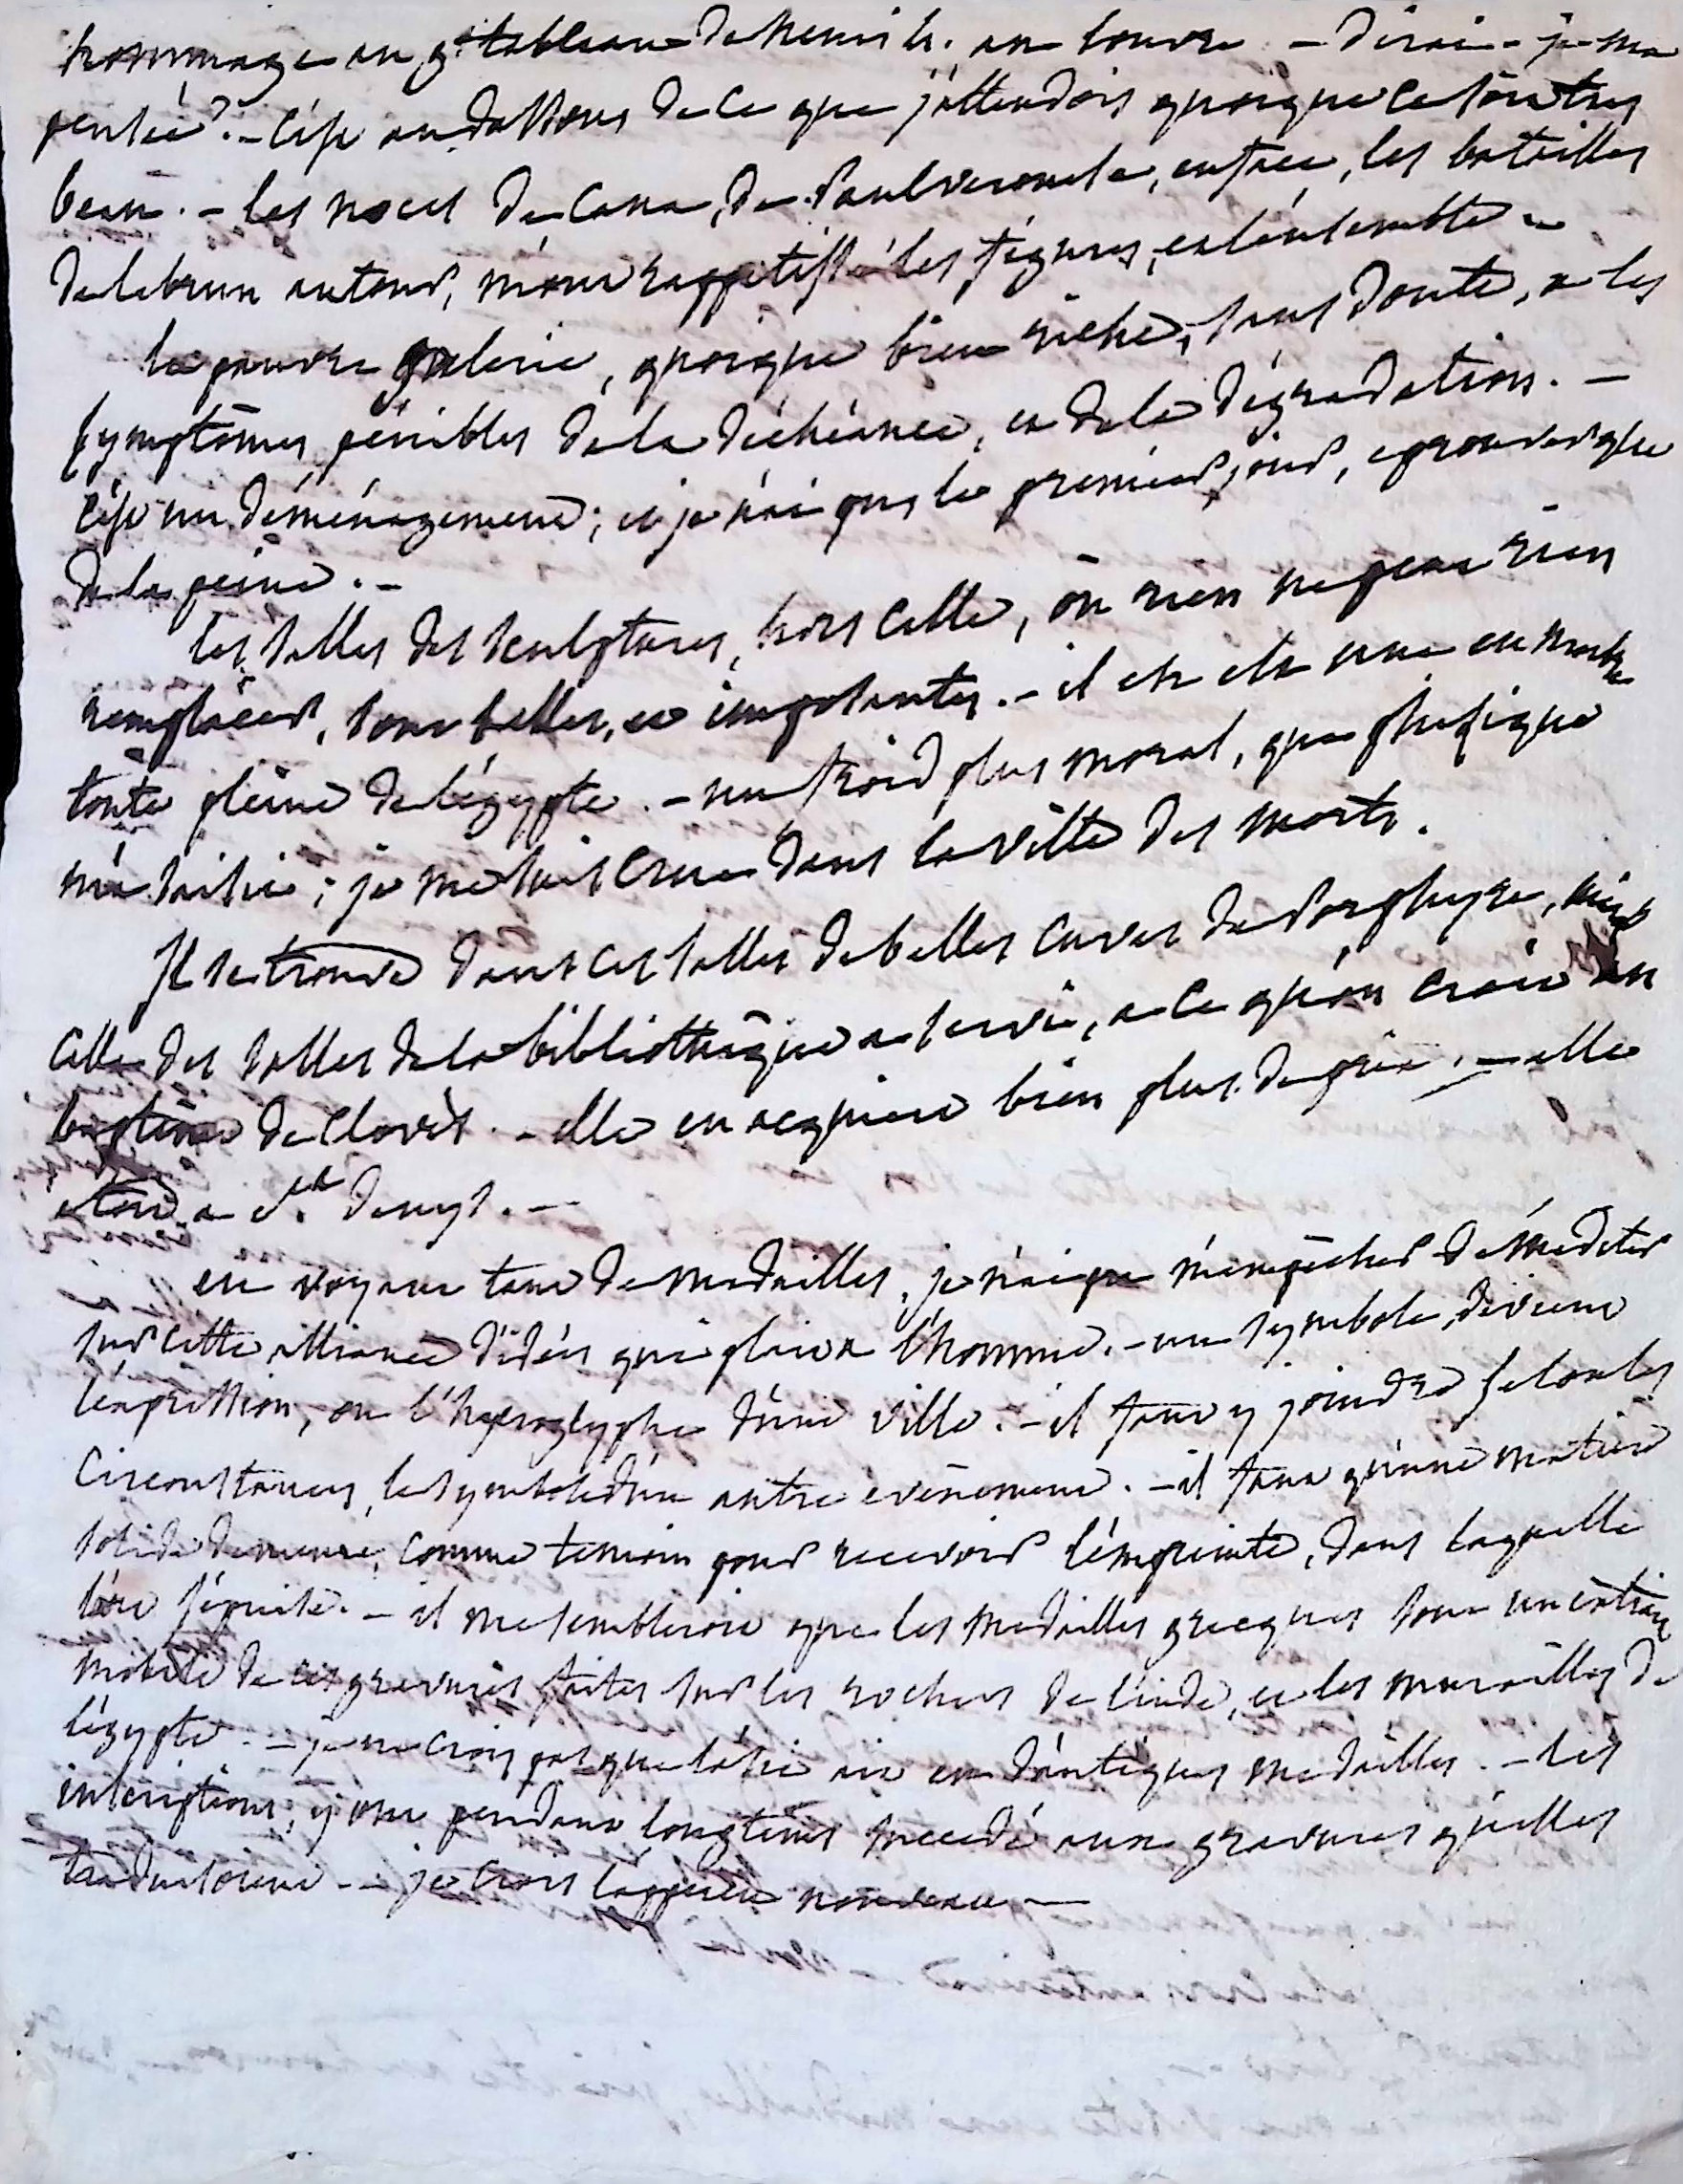 hommage au gd tableau de henri 4. au louvre – dirai-je ma
pensée ? – c'est au dessous de ce que j'attendois quoique ce soit très
beau. – les noces de Cana, de Paul veronese, en face, les batailles
de lebrun autour, m'ont rappetissé les figures, et l'ensemble –
la pauvre galerie, quoique bien riche, sans doute, a les
symptômes, pénibles de la déchéance, et de la dégradation. –
c'est un déménagement ; et je n'ai pu, le premier jour, eprouver que
de la peine. –
les salles des sculptures, hors celle, où rien ne peut rien
remplacer, sont belles, et imposantes. – il en est une en
toute pleine de l'égypte. – un froid plus moral, que phisique
m'a saisie ; je me suis crue dans la ville des morts.
Il se trouve dans ces salles de belles cuves de Porphyre,
celle des salles de la bibliothèque a servi, a ce qu'on croit au
baptême de Clovis. – elle en acquiert bien plus de prix. – elle
etoit a St. Denys. –
en voyant tant de medailles, je n'ai pu m'empêcher de méditer
sur cette alliance d'idées qui plait a l'homme. – un symbole, devient
l'expression, ou l'hyeroglyphe d'une ville. – il faut y joindre selon les
circonstances, le symbole d'un autre évènement. – il faut qu'une matière
solide demeure, comme temoin pour recevoir l'empreinte, dans laquelle
l'ére s'épuise. – il me sembleroit que les medailles grecques sont un extrait
mobile de ces gravures faites sur les rochers de l'inde, et les murailles de
l'égypte. – je ne crois pas que l'asie ait eu d'antiques medailles. – les
inscriptions, y ont pendant longtems succedé aux gravures qu'elles
traduisoient – je crois l'apperçu nouveau –